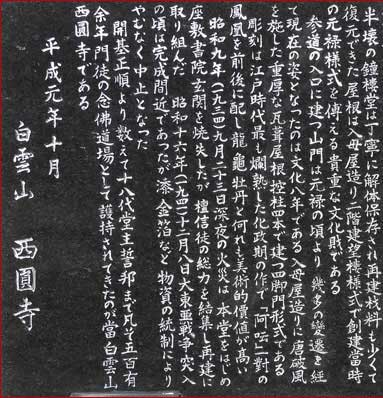 半壊の鐘楼堂は丁寧に解体保存され再建材料も少くて
復元できた屋根は入母屋造り二階建望楼様式で創建当時
の元禄様式を傳える貴重な文化財である
参道の入口に建つ山門は元禄の頃より幾多の変遷を経
て現在の姿となったのは文化八年である入母屋造りに唐破風
を施した重厚な瓦葺屋根控柱四本で建つ四脚門形式である
彫刻は江戸時代最も爛熟した化政期の作で「阿吽」一対の
鳳凰を前後に配し龍亀牡丹と何れも美術的價値が高い
昭和九年(一九三四)九月二十三日深夜の火災は本堂をはじめ
座敷書院玄関を焼失したが檀信徒の総力を結集し再建に
取り組んだ 昭和十六年(一九四一)十二月八日大東亜戦争突入
の頃は完成間近であったが漆金箔など物資の統制により
やむなく中止となった
開基正順より数えて十八代堂主誓邦まで凡そ五百有
余年門徒の念佛道場として護持されてきたのが當白雲山
西圓寺である
平成元年十月
白雲山 西圓寺